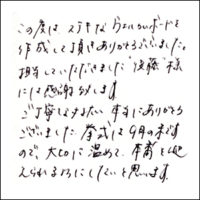 この度は ステキな ウェルカムボードを
作成して頂きありがとうございました。
担当していただきました "後藤" 様
には感謝致します。
ご丁寧な 本当にありがとう
ございました 挙式は9月の末です
ので、大切に温めて、本番を迎
えられるようにしたいと思います。